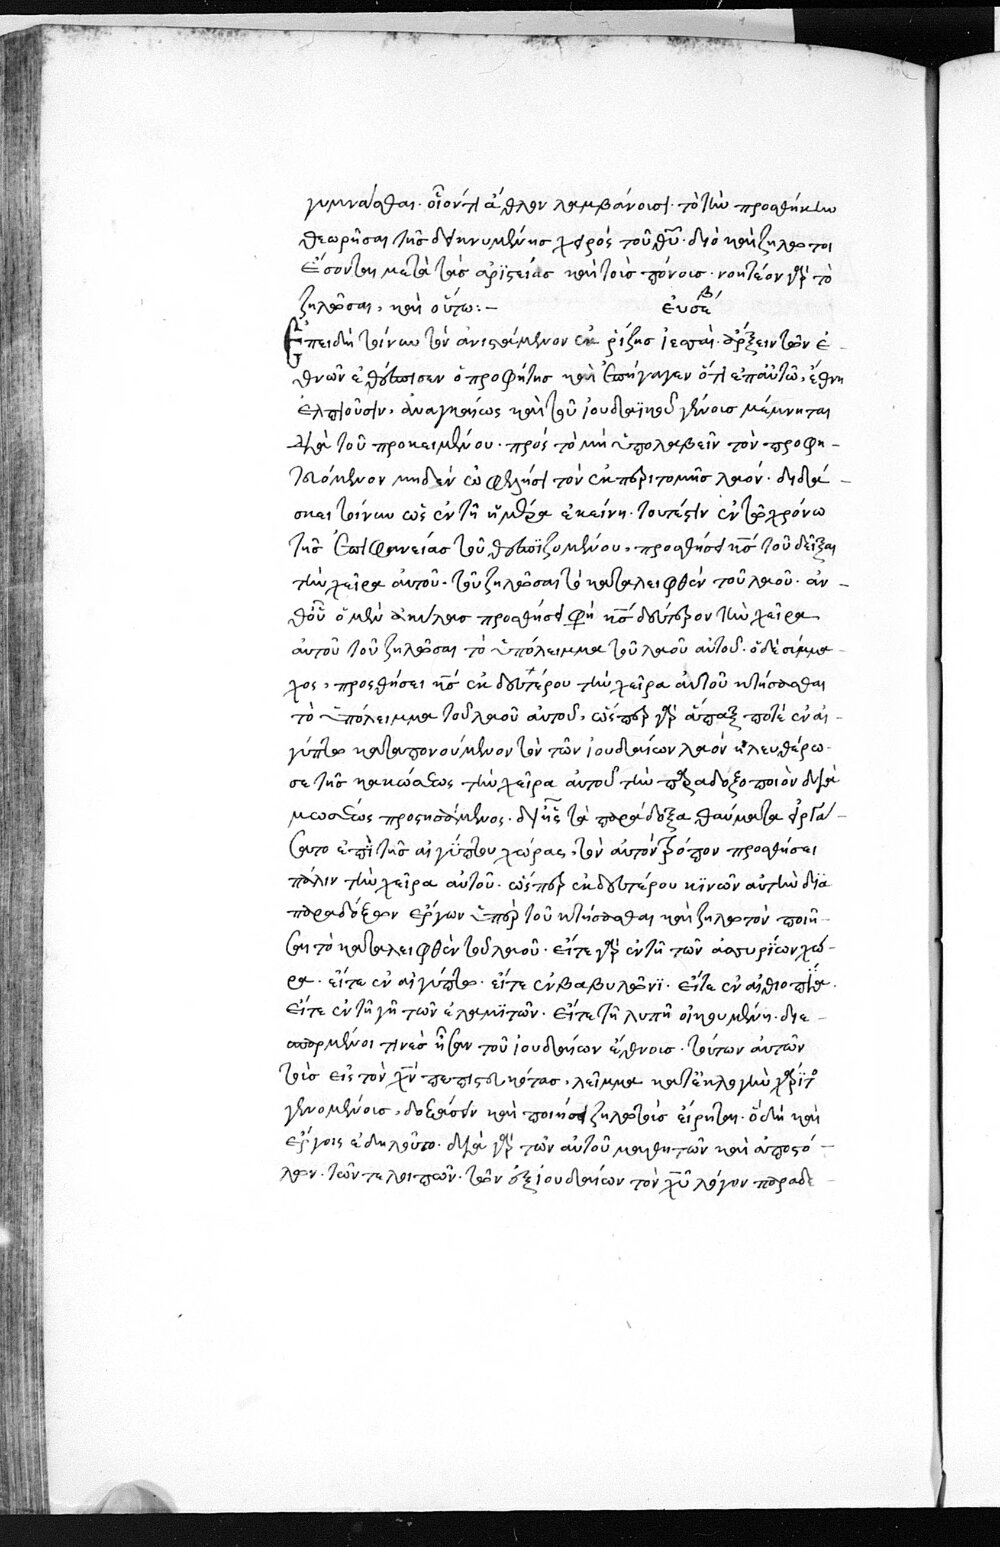 γυμνάσθαι· οἱονεὶ ἆθλον λαμβάνουσι· τὸ τὴν προσθήκην
θεωρῆσαι τῆς δεικνυμένης χειρός τοῦ θυ̅· διὸ καὶ ζηλωτοὶ
ἔσονται μετὰ τὰς ἀριστείας καὶ τοὺς πόνους· νοητέον γὰρ τὸ
ζηλῶσαι, καὶ οὕτω:— εὐσεβ
Ἐπειδὴ τοίνυν τὸν ἀνιστάμενον ἐκ ῥίζης ἰεσσαὶ· ἄρξειν τῶν ἐ-
θνῶν ἐθέσπισεν ὁ προφήτης καὶ ἐπήγαγεν ὅτι ἐπ αὐτῶ, ἔθνη
ἐλπιοῦσιν, ἀναγκαίως καὶ τοῦ ἰουδαϊκοῦ γένους μέμνηται
διὰ τοῦ προκειμένου· πρὸς τὸ μὴ ὑπολαβεῖν τὸν προφη-
τευόμενον μηδὲν ὠφελῆσαι τὸν ἐκ περιτομῆς λαόν· διδά-
σκει τοίνυν ὡς ἐν τῆ ἡμέρα ἐκείνη· τουτέστιν ἐν τῶ χρόνω
τῆς ἐπιφανείας τοῦ θεσπιζομένου, προσθήσει κς̅ τοῦ δεῖξαι
τὴν χεῖρα αὐτοῦ· τοῦ ζηλῶσαι τὸ καταλειφθὲν τοῦ λαοῦ· ἀν-
θοὗ ὁ μὲν ἀκύλας προσθήσει φη κς̅ δεύτερον τὴν χεῖρα
αὐτοῦ τοῦ ζηλῶσαι τὸ ὑπόλειμμα τοῦ λαοῦ αὐτοῦ· ὁ δὲ σύμμα-
χος, προσθήσει κς̅ ἐκ δευτέρου τὴν χεῖρα αὐτοῦ κτήσασθαι
τὸ ὑπόλειμμα τοῦ λαοῦ αὐτοῦ, ὥσπερ γὰρ ἅπαξ ποτὲ ἐν αἰ-
γύπτω καταπονούμενον τὸν τῶν ἰουδαίων λαὸν ἠλευθέρω-
σε τῆς κακώσεως τὴν χεῖρα αὐτοῦ τὴν παραδοξοποιὸν διὰ
μωσέως προϊσχόμενος· δι ἧς τὰ παράδοξα θαύματα εἰργά-
σατο ἐπὶ τῆς αἰγύπτου χώρας, τὸν αὐτὸν τρόπον προσθήσει
πάλιν τὴν χεῖρα αὐτοῦ· ὥσπερ ἐκ δευτέρου κινῶν αὐτὴν διὰ
παραδόξων ἔργων ὑπὲρ τοῦ κτήσασθαι καὶ ζηλωτὸν ποιῆ-
σαι τὸ καταλειφθὲν τοῦ λαοῦ· εἴτε γὰρ ἐν τῆ τῶν ἀσσυρίων χώ-
ρα· εἴτε ἐν αἰγύπτω· εἴτε ἐν βαβυλῶνϊ· εἴτε ἐν αἰθιοπία·
εἴτε ἐν τῆ γῆ τῶν ἐλαμιτῶν· εἴτε τῆ λοιπῆ οἰκουμένη· διε-
σπαρμένοι τινὲς ἦσαν τοῦ ἰουδαίων ἔθνους· τούτων αὐτῶν
τοὺς εἰς τὸν χν̅ πεπιστευκότας, λεῖμμα κατ ἐκλογὴν χάριτος
γενομένους, δοξάσειν καὶ ποιήσειν ζηλωτοὺς εἴρηται· ὃ δὴ καὶ
ἔργοις ἐδηλοῦτο· διὰ γὰρ τῶν αὐτοῦ μαθητῶν καὶ ἀποστό-
λων· τῶν τε λοιπῶν· τῶν ἐξ ἰουδαίων τὸν χυ̅ λόγον παραδε-